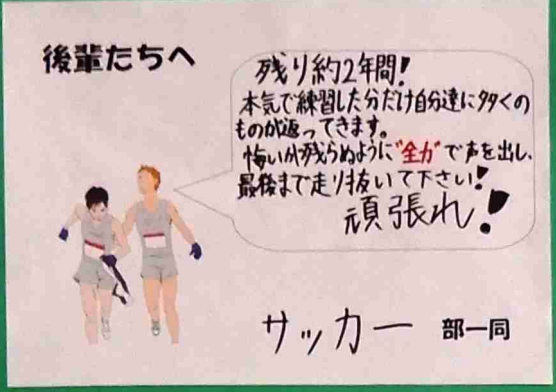 後輩たちへ
残り約2年間!
本気で練習した分だけ自分達に多くの
ものが返ってきます。
悔いが残らぬように"全力"で声を出し、
最後まで走り抜いて下さい!
頑張れ!
サッカー 部一同